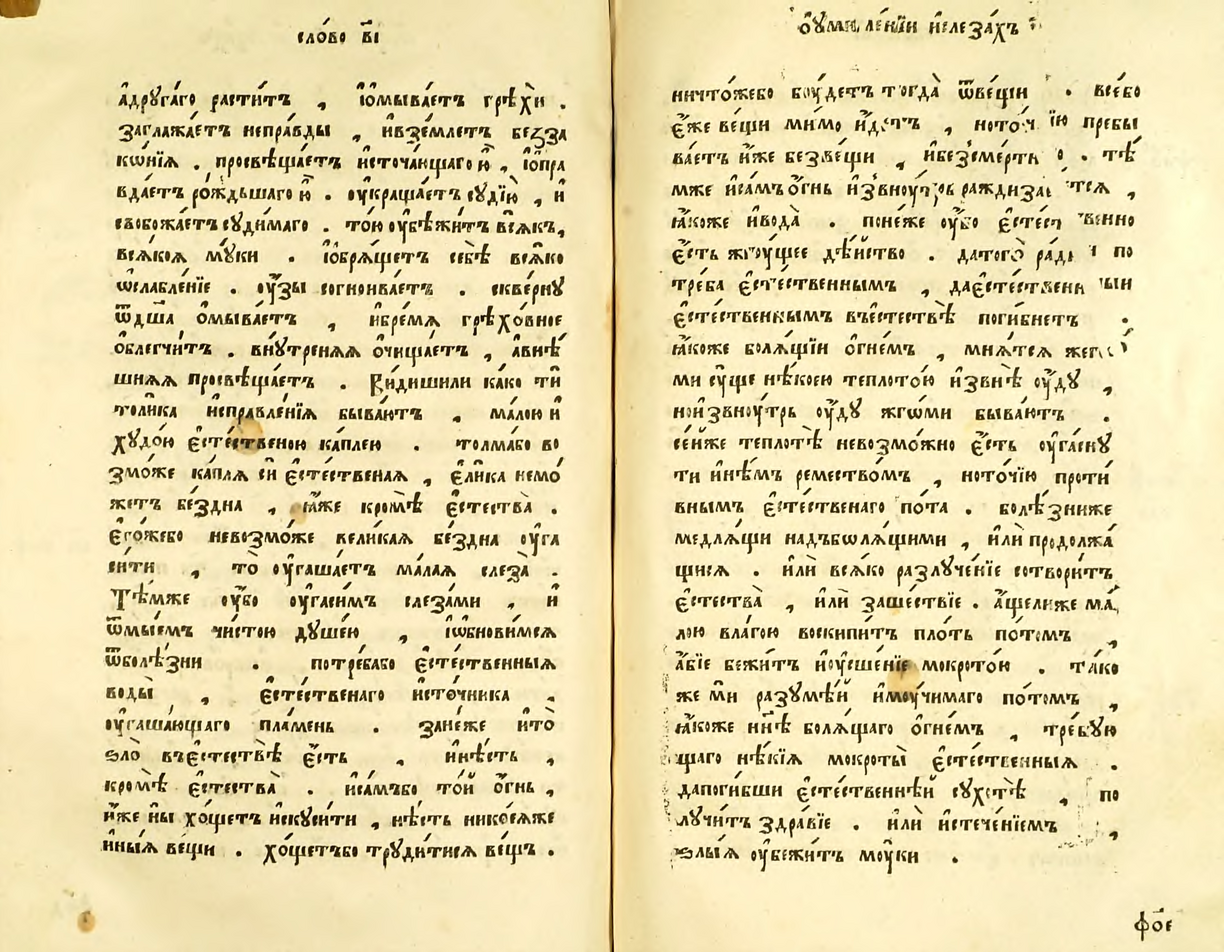 сло́во в҃і
а҆дрꙋга́го расти́тъ , і҆ѡ҆мыва́етъ грѣхѝ .
заглажа́етъ непра́вды , и҆взе́млетъ безза
ко́нїѧ . просвѣща́етъ и҆сточа́ющаго ю҆̀ , і҆ѡ҆пра
вда́етъ ро́ждьшаго ю҆̀ . ᲂу҆краша́етъ сꙋдїю̀ , и҆
свобожа́етъ сꙋди́маго . то́ю ᲂу҆бѣжи́тъ всѧ́къ,
всѧ́коѧ мꙋ́ки . і҆ѡ҆брѧ́щетъ себѣ̀ всѧ́ко
ѡ҆слабле́нїе . ᲂу҆́зы согноива́етъ . скве́рнꙋ
ѿдш҃а̀ ѡ҆мыва́етъ , и҆бре́мѧ грѣхо́вное
ѡ҆блегчи́тъ . внꙋ́тренѧѧ ѡ҆чища́етъ , а҆внѣ́
шнѧѧ просвѣща́етъ . Ви́дишили ка́ко ти
толи́ка и҆справле́нїѧ быва́ютъ , ма́лою и҆
хꙋдо́ю є҆сте́ственою ка́плею . толма́бо во
змо́же ка́плѧ сѝ є҆сте́ственаѧ , є҆ли́ка немо́
жетъ бе́здна , ꙗ҆́же кромѣ̀ є҆стества̀ .
є҆го́жебо невозмо́же вели́каѧ бе́здна ᲂу҆га
си́ти , то̀ ᲂу҆гаша́етъ ма́лаѧ слеза̀ .
Тѣ́мже ᲂу҆̀бо ᲂу҆гаси́мъ слеза́ми , и҆
ѿмы́емъ чи́стою дꙋше́ю , і҆ѡ҆бнови́мсѧ
ѿболѣ́зни . потре́бабо є҆сте́ственныѧ
воды̀ , є҆сте́ственаго и҆сто́чника ,
ᲂу҆гаша́ющаго пла́мень . зане́же и҆то̀
ѕло̀ въестествѣ̀ є҆́сть , и҆нѣ́сть ,
кромѣ̀ є҆стества̀ . и҆са́мъбо то́й ѻ҆́гнь ,
и҆́же ны̀ хо́щетъ и҆скꙋси́ти , нѣ́сть нико́еѧже
и҆ны́ѧ ве́щи . хо́щетъбо трꙋди́тисѧ ве́щъ .
ѻ҆ᲂу҆миле́нїи и҆слеза́хъ
ничто́жебо бꙋ́детъ тогда̀ ѿве́щїи . все́бо
є҆́же ве́щи ми́мо и҆́детъ , ното́чїю пребы
ва́етъ и҆́же безве́щи , и҆безсме́ртно . тѣ́
мже и҆са́мъ ѻ҆́гнь и҆звноу́трь раждиза́етсѧ ,
ꙗ҆́коже и҆вода̀ . поне́же ᲂу҆́бо є҆сте́ственно
є҆́сть жгоу́щее дѣ́йство . датого̀ ра́ди и҆ по
тре́ба є҆сте́ственнымъ , дає҆сте́ственныи
є҆сте́ственнымъ въестествѣ̀ поги́бнетъ .
ꙗ҆́коже болѧ́щїи ѻ҆гне́мъ , мнѧ́тсѧ жего́
ми сꙋ́ще нѣ́коею теплото́ю и҆звнѣ̀ ᲂу҆́дꙋ ,
нои҆звноу́трь ᲂу҆́дꙋ жго́ми быва́ютъ .
се́йже теплотѣ̀ невозмо́жно є҆́сть ᲂу҆гаснꙋ́
ти и҆нѣ́мъ ремество́мъ , ното́чїю проти́
внымъ є҆сте́ственаго по́та . болѣ́зниже
ме́длѧщи надъболѧ́щими , и҆лѝ продолжа́
щисѧ . и҆лѝ всѧ́ко разлꙋче́нїе сотвори́тъ
є҆стества̀ , и҆лѝ заше́ствїе . а҆́щелиже ма́
лою вла́гою воскипи́тъ пло́ть по́томъ ,
а҆́бїе бежи́тъ и҆оу҆сше́нїе мокрото́ю . та́ко
же мѝ разꙋмѣ́й и҆моу́чимаго по́томъ ,
ꙗ҆́коже нн҃ѣ болѧ́щаго ѻ҆гне́мъ , тре́бꙋю
щаго нѣ́кїѧ мокроты̀ є҆сте́ственныѧ .
дапоги́бши є҆сте́ственнѣй сꙋхотѣ̀ , по
лꙋчи́тъ здра́вїе . и҆лѝ и҆стече́нїемъ
ѕлы́ѧ ᲂу҆бежи́тъ моу́ки .
фо҃є